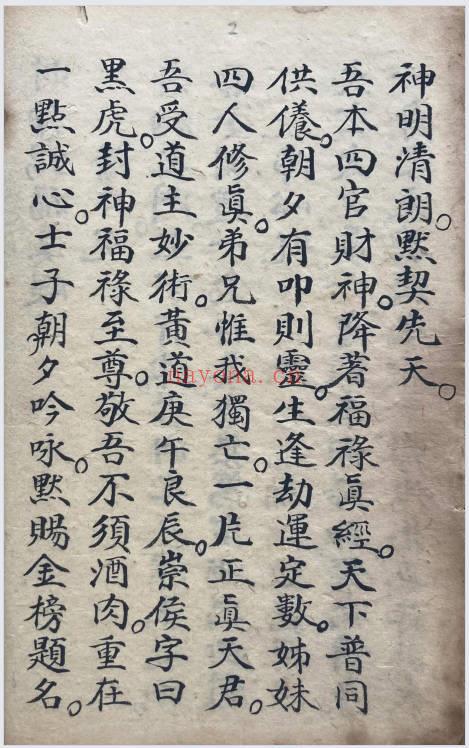 2
神明清朗。默契先天。
吾本四官財神。降著福祿眞經。天下普同
供儀。朝夕有叩則靈。生逢劫運定數。姊妹
四人修眞。弟兄惟我獨亡。一片正眞天君。
吾受道主妙術。黃道庚午良辰。崇侯字曰
黑虎。封神福祿至尊。敬吾不須酒肉。重在
一點誠心。士子朝夕吟咏。默賜金榜題名。
nayona.cn